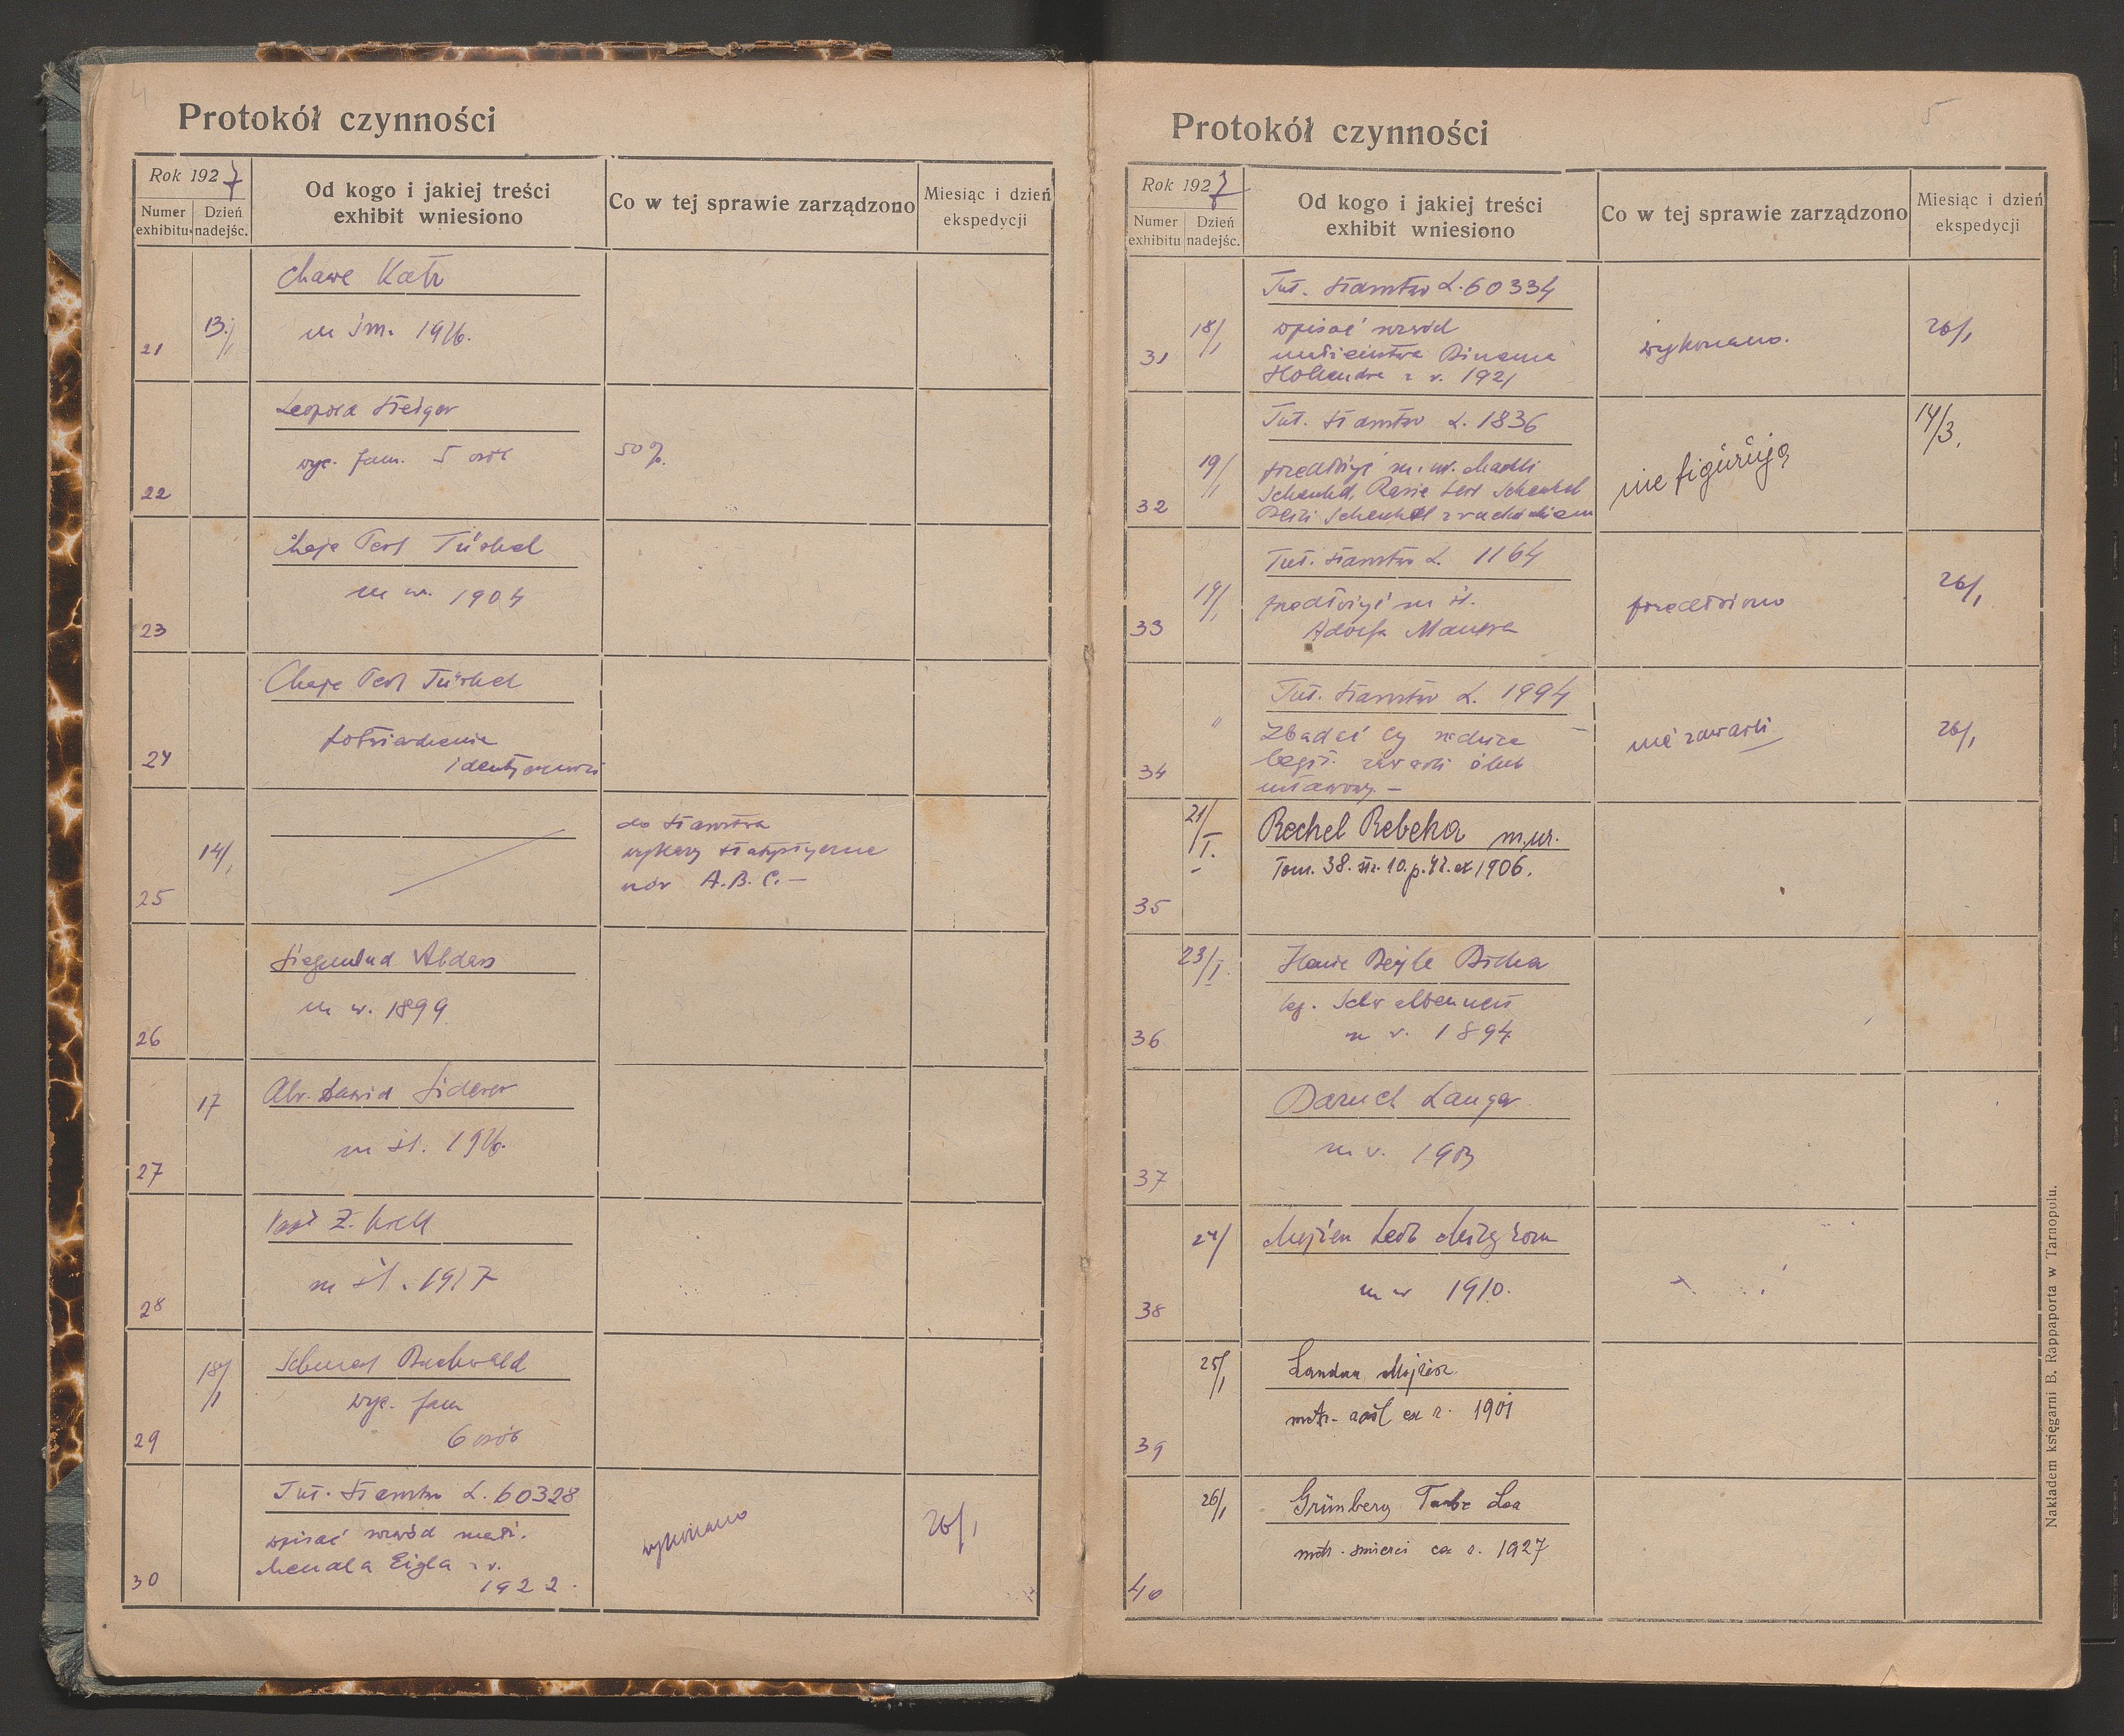 4
Protokół czynności
Rok 1927
Numer exhibitu
Dzień nadejśc.
Od kogo i jakiej treści
exhibit wniesiono
Co w tej sprawie zarządzono
Miesiąc i dzień
ekspedycji
21
13/1
Chawe Katz
m im. 1926.
22
Leopold Steiger
wyc. fam. 5 osób
50 gr.
23
Chaje Perl Türkel
m w. 1904
24
Chaje Perl Türkel
identyczności
25
14/1
do starostwa
wykazy statystyczne
wzór A. B. C. –
26
m w. 1899
27
17
Abr. Dawid Siderer
m śl. 1926.
28
m śl. 1917
29
18/1
Buchwald
wyc. fam
6 osób
30
Tut. Starostwo L. 60328
wpisać rozwód małż.
Mendla Eigla z r.
1922.
wykonano
26/1
5
Protokół czynności
Rok 1927
Numer exhibitu
Dzień nadejśc.
Od kogo i jakiej treści
exhibit wniesiono
Co w tej sprawie zarządzono
Miesiąc i dzień
ekspedycji
31
18/1
Tut. Starostwo L. 60334
wpisać rozwód
małżeństwa Binema
Hollendra z r. 1921
wykonano.
26/1
32
19/1
Tut. Starostwo L. 1836
przedłożyć m. ur.
Schenkel
nie figurują
14/3.
33
19/1
Tut. Starostwo L. 1164
przedłożyć m śl.
Adolfa
przedłożono
26/1
34
"
Tut. Starostwo L. 1994
Zbadać czy rodzice
zawarli ślub
ustawowy –
nie zawarli
26/1
35
21/I.
Rechel Rebeka m. ur.
Tom. 38. str. 10. p. 42. ex 1906.
36
23/I.
m v. 1894
37
Baruch Langer
m v. 1903
38
24/
Mojżesz Leib Milgrom
m w 1910.
39
25/1
Landau Mojżesz
metr. ex r. 1901
40
26/1
Grünberg Taube Lea
metr. śmierci ex r. 1927
Nakładem księgarni B. Rappaporta w Tarnopolu.